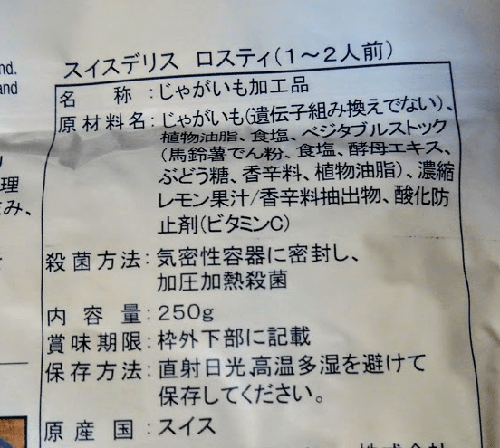 スイスデリス ロスティ(1〜2人前)
nd.
and
名 称:じゃがいも加工品
原材料名:じゃがいも(遺伝子組み換えでない)、
植物油脂、食塩、ベジタブルストック
(馬鈴薯でん粉、食塩、酵母エキス、
ぶどう糖、香辛料、植物油脂)、濃縮
レモン果汁/香辛料抽出物、酸化防
止剤(ビタミンC)
理
み、
殺菌方法:気密性容器に密封し、
加圧加熱殺菌
内 容 量:250g
賞味期限:枠外下部に記載
保存方法:直射日光,高温多湿を避けて
保存してください。
原 産 国:スイス